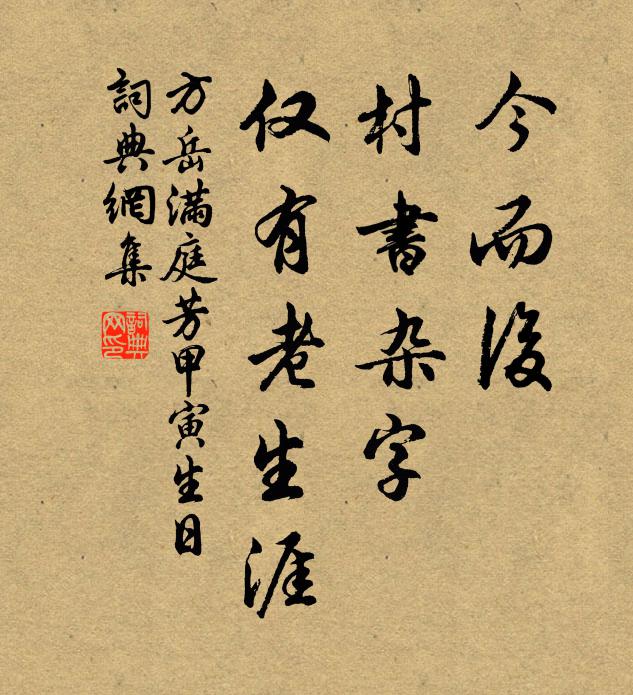 今而後
村書杂字
仅有老生涯
方岳满庭芳甲寅生日
詞典網集
詞典
网印